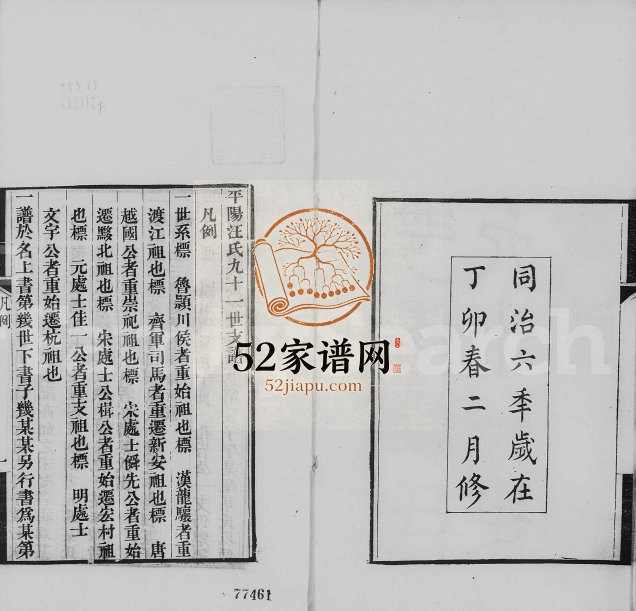 同治六年歲在
丁卯春二月修
平陽汪氏九十一世支譜
凡例
一世系標 魯潁川侯者重始祖也標 漢龍驤者重
渡江祖也標 齊軍司馬者重遷新安祖也標 唐
越國公者重崇祀祖也標 宋處士僻先公者重始
遷黟北祖也標 宋處士公楫公者重始遷宏村祖
也標 元處士佳一公者重支祖也標 明處士
文宇公者重始遷杭祖也
一譜於名上書第幾世下書子幾某某另行書爲某第
凡例
52家谱网
52jiapu.com
77461